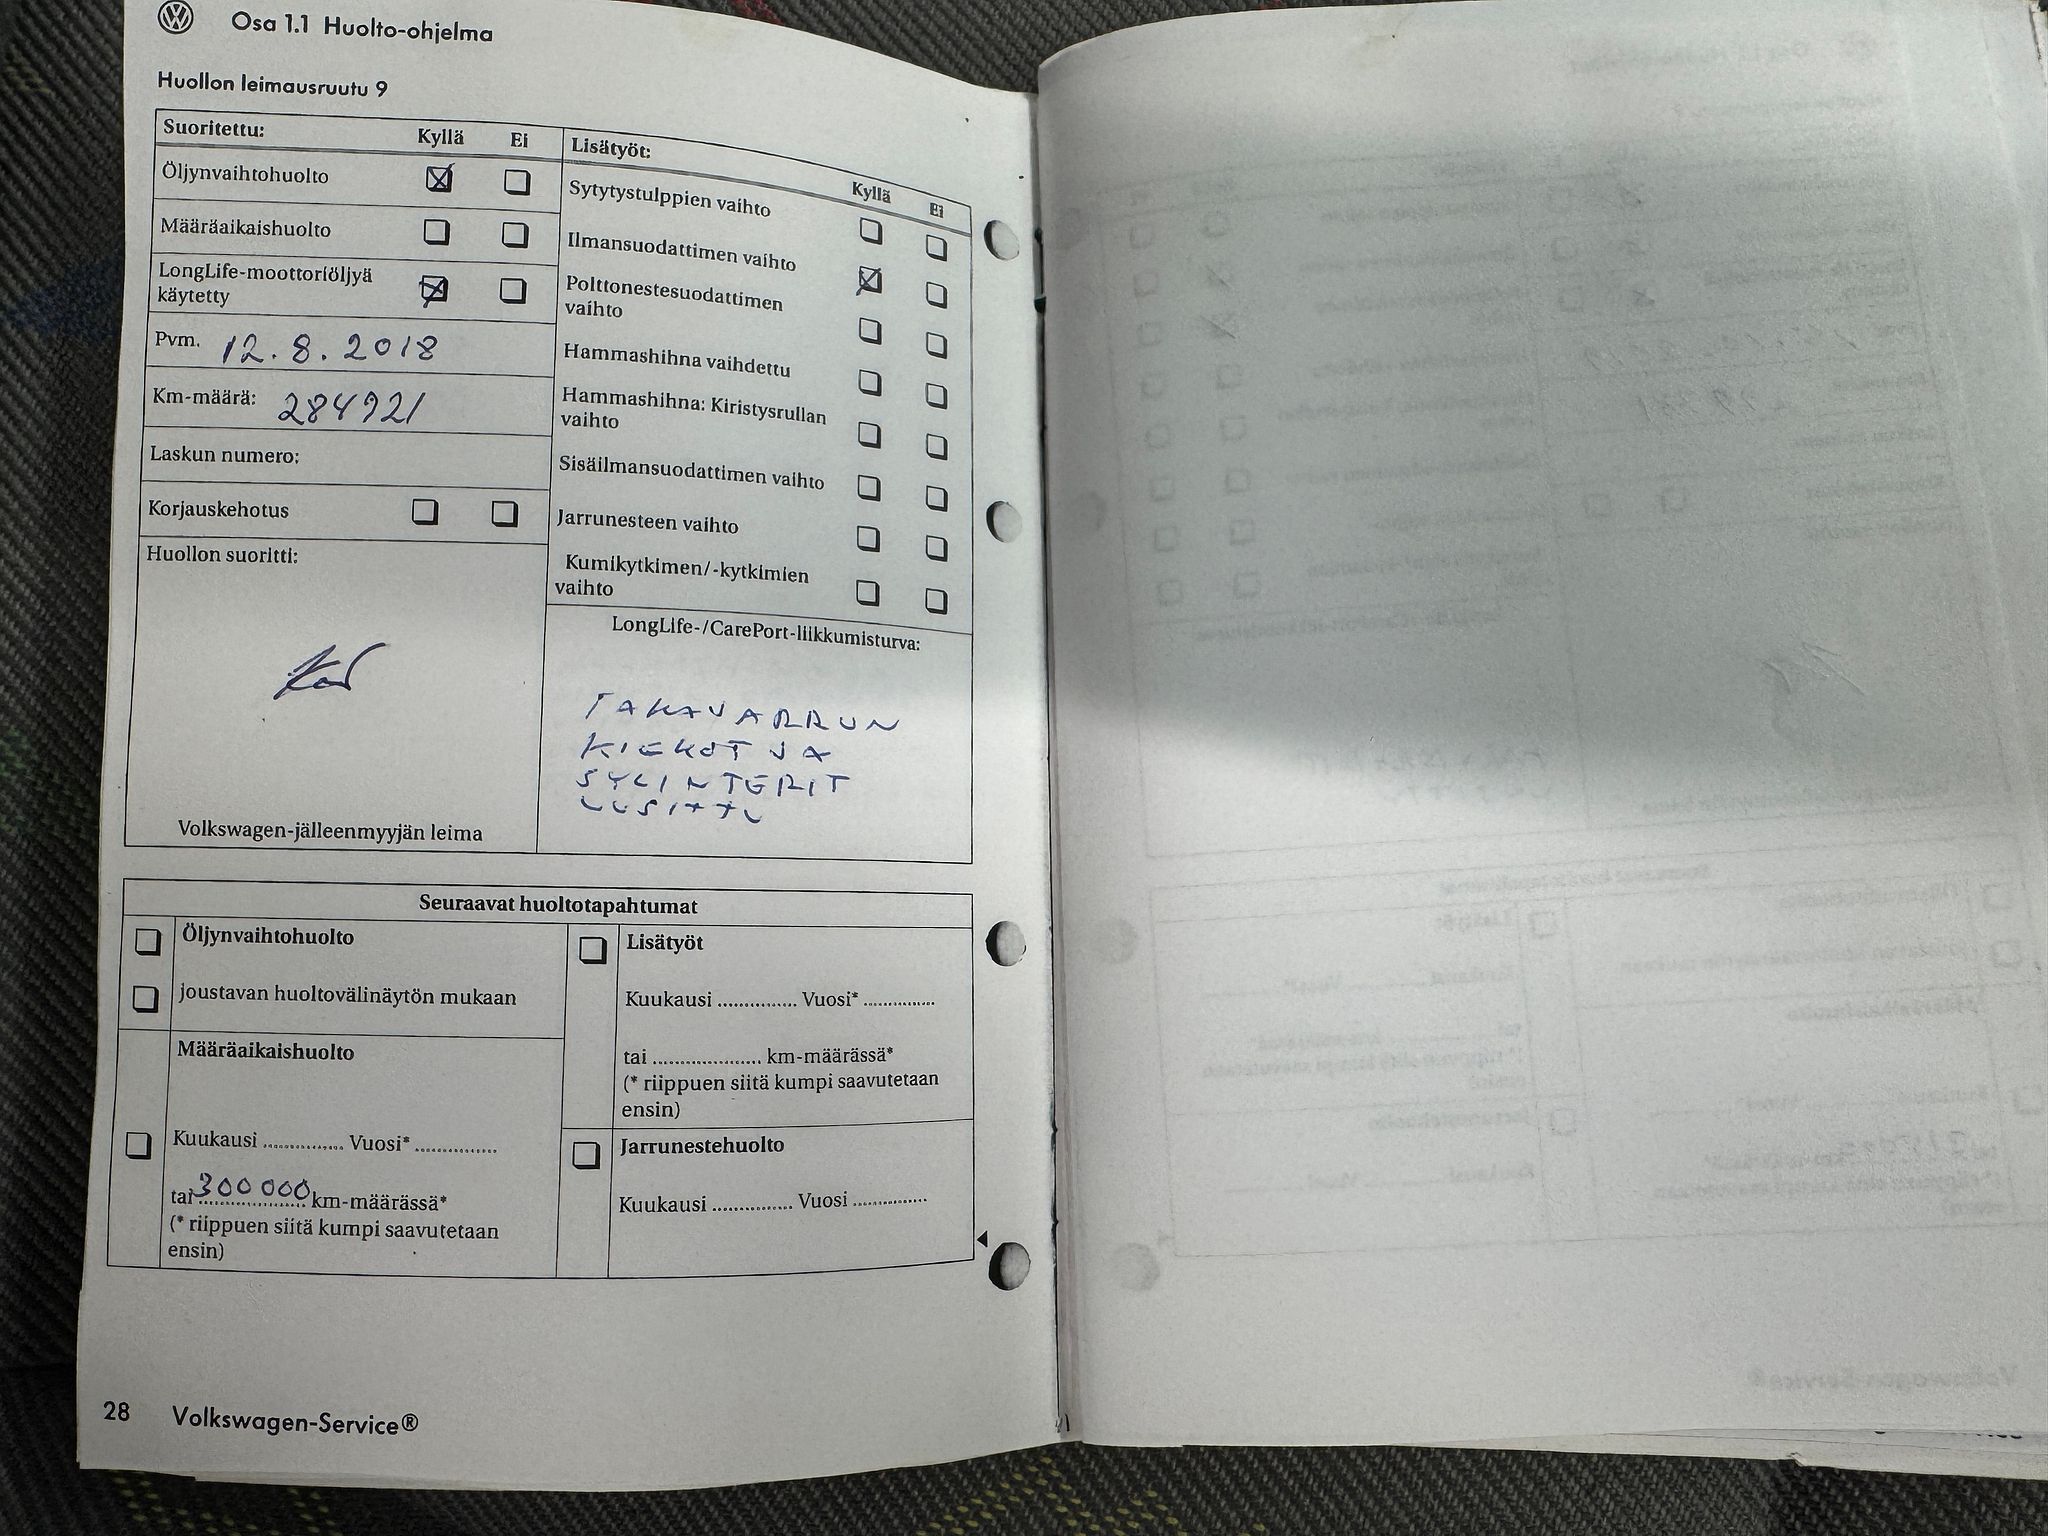 Osa 1.1 Huolto-ohjelma
Huollon leimausruutu 9
Suoritettu: Kyllä Ei
Öljynvaihtohuolto
Määräaikaishuolto
LongLife-moottoriöljyä
käytetty
Pvm. 12.8.2018
Km-määrä: 284921
Laskun numero:
Korjauskehotus
Huollon suoritti:
Volkswagen-jälleenmyyjän leima
Lisätyöt:
Kyllä Ei
Sytytystulppien vaihto
Ilmansuodattimen vaihto
Polttonestesuodattimen
vaihto
Hammashihna vaihdettu
Hammashihna: Kiristysrullan
vaihto
Sisäilmansuodattimen vaihto
Jarrunesteen vaihto
Kumikytkimen/-kytkimien
vaihto
LongLife-/CarePort-liikkumisturva:
TAKAVARRUN
KIEKOT JA
SYLINTERIT
UUSITTU
Seuraavat huoltotapahtumat
Öljynvaihtohuolto
joustavan huoltovälinäytön mukaan
Määräaikaishuolto
Kuukausi .............. Vuosi* ..............
tai 300 000 km-määrässä*
(* riippuen siitä kumpi saavutetaan
ensin)
Lisätyöt
Kuukausi .............. Vuosi* ..............
tai .................... km-määrässä*
(* riippuen siitä kumpi saavutetaan
ensin)
Jarrunestehuolto
Kuukausi .............. Vuosi ..............
28 Volkswagen-Service®